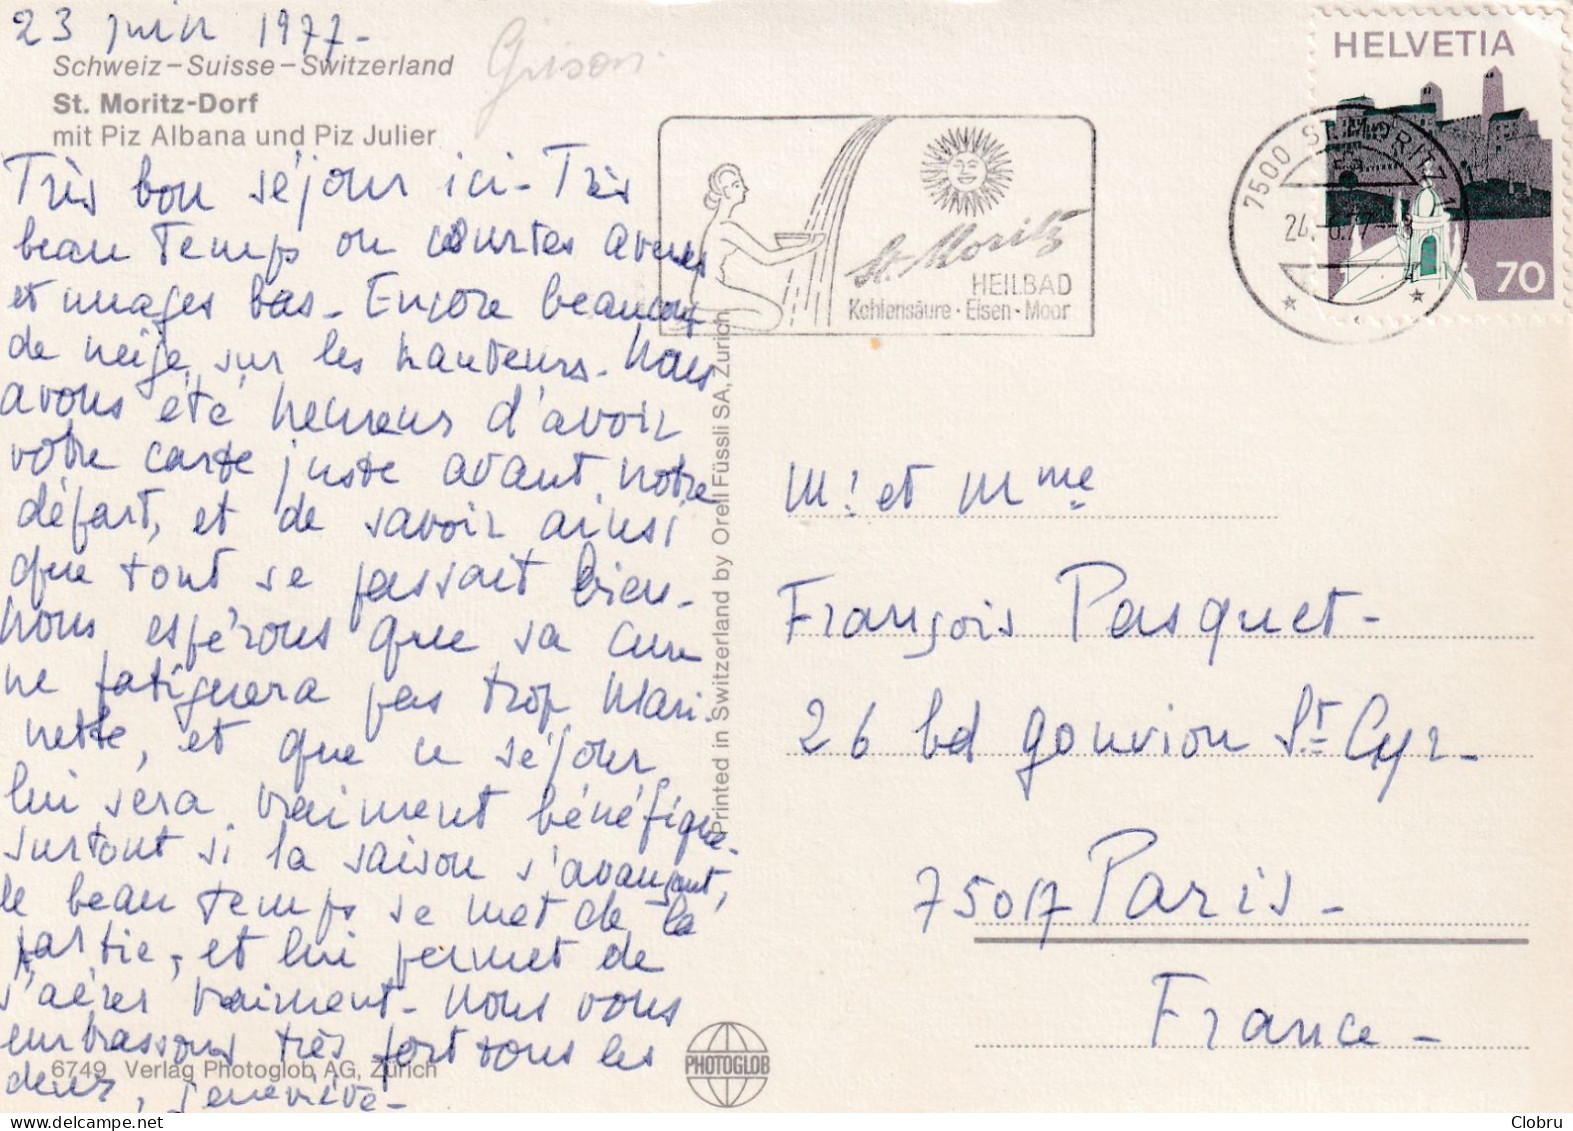 23 juin 1977-
Schweiz – Suisse – Switzerland
Grison
St. Moritz-Dorf
mit Piz Albana und Piz Julier
Très bon séjour ici - Très
beau temps ou courtes averses
et nuages bas - Encore beaucoup
de neige sur les hauteurs - Nous
avons été heureux d'avoir
votre carte juste avant notre
départ, et de savoir ainsi
que tout se passait bien -
Nous espérons que sa cure
ne fatiguera pas trop Mari-
nette, et que ce séjour
lui sera vraiment bénéfique -
surtout si la saison s'avançant,
le beau temps se met de la
partie, et lui permet de
s'aérer vraiment - Nous vous
embrassons très fort tous les
deux, Geneviève -
6749 Verlag Photoglob AG, Zürich
Printed in Switzerland by Orell Füssli SA, Zürich
PHOTOGLOB
St. Moritz
HEILBAD
Kohlensäure · Eisen · Moor
7500 ST. MORITZ 1
24.6.77-18
HELVETIA
70
M! et Mme
François Pasquet -
26 bd Gouvion St Cyr -
75017 Paris -
France -
Clobru